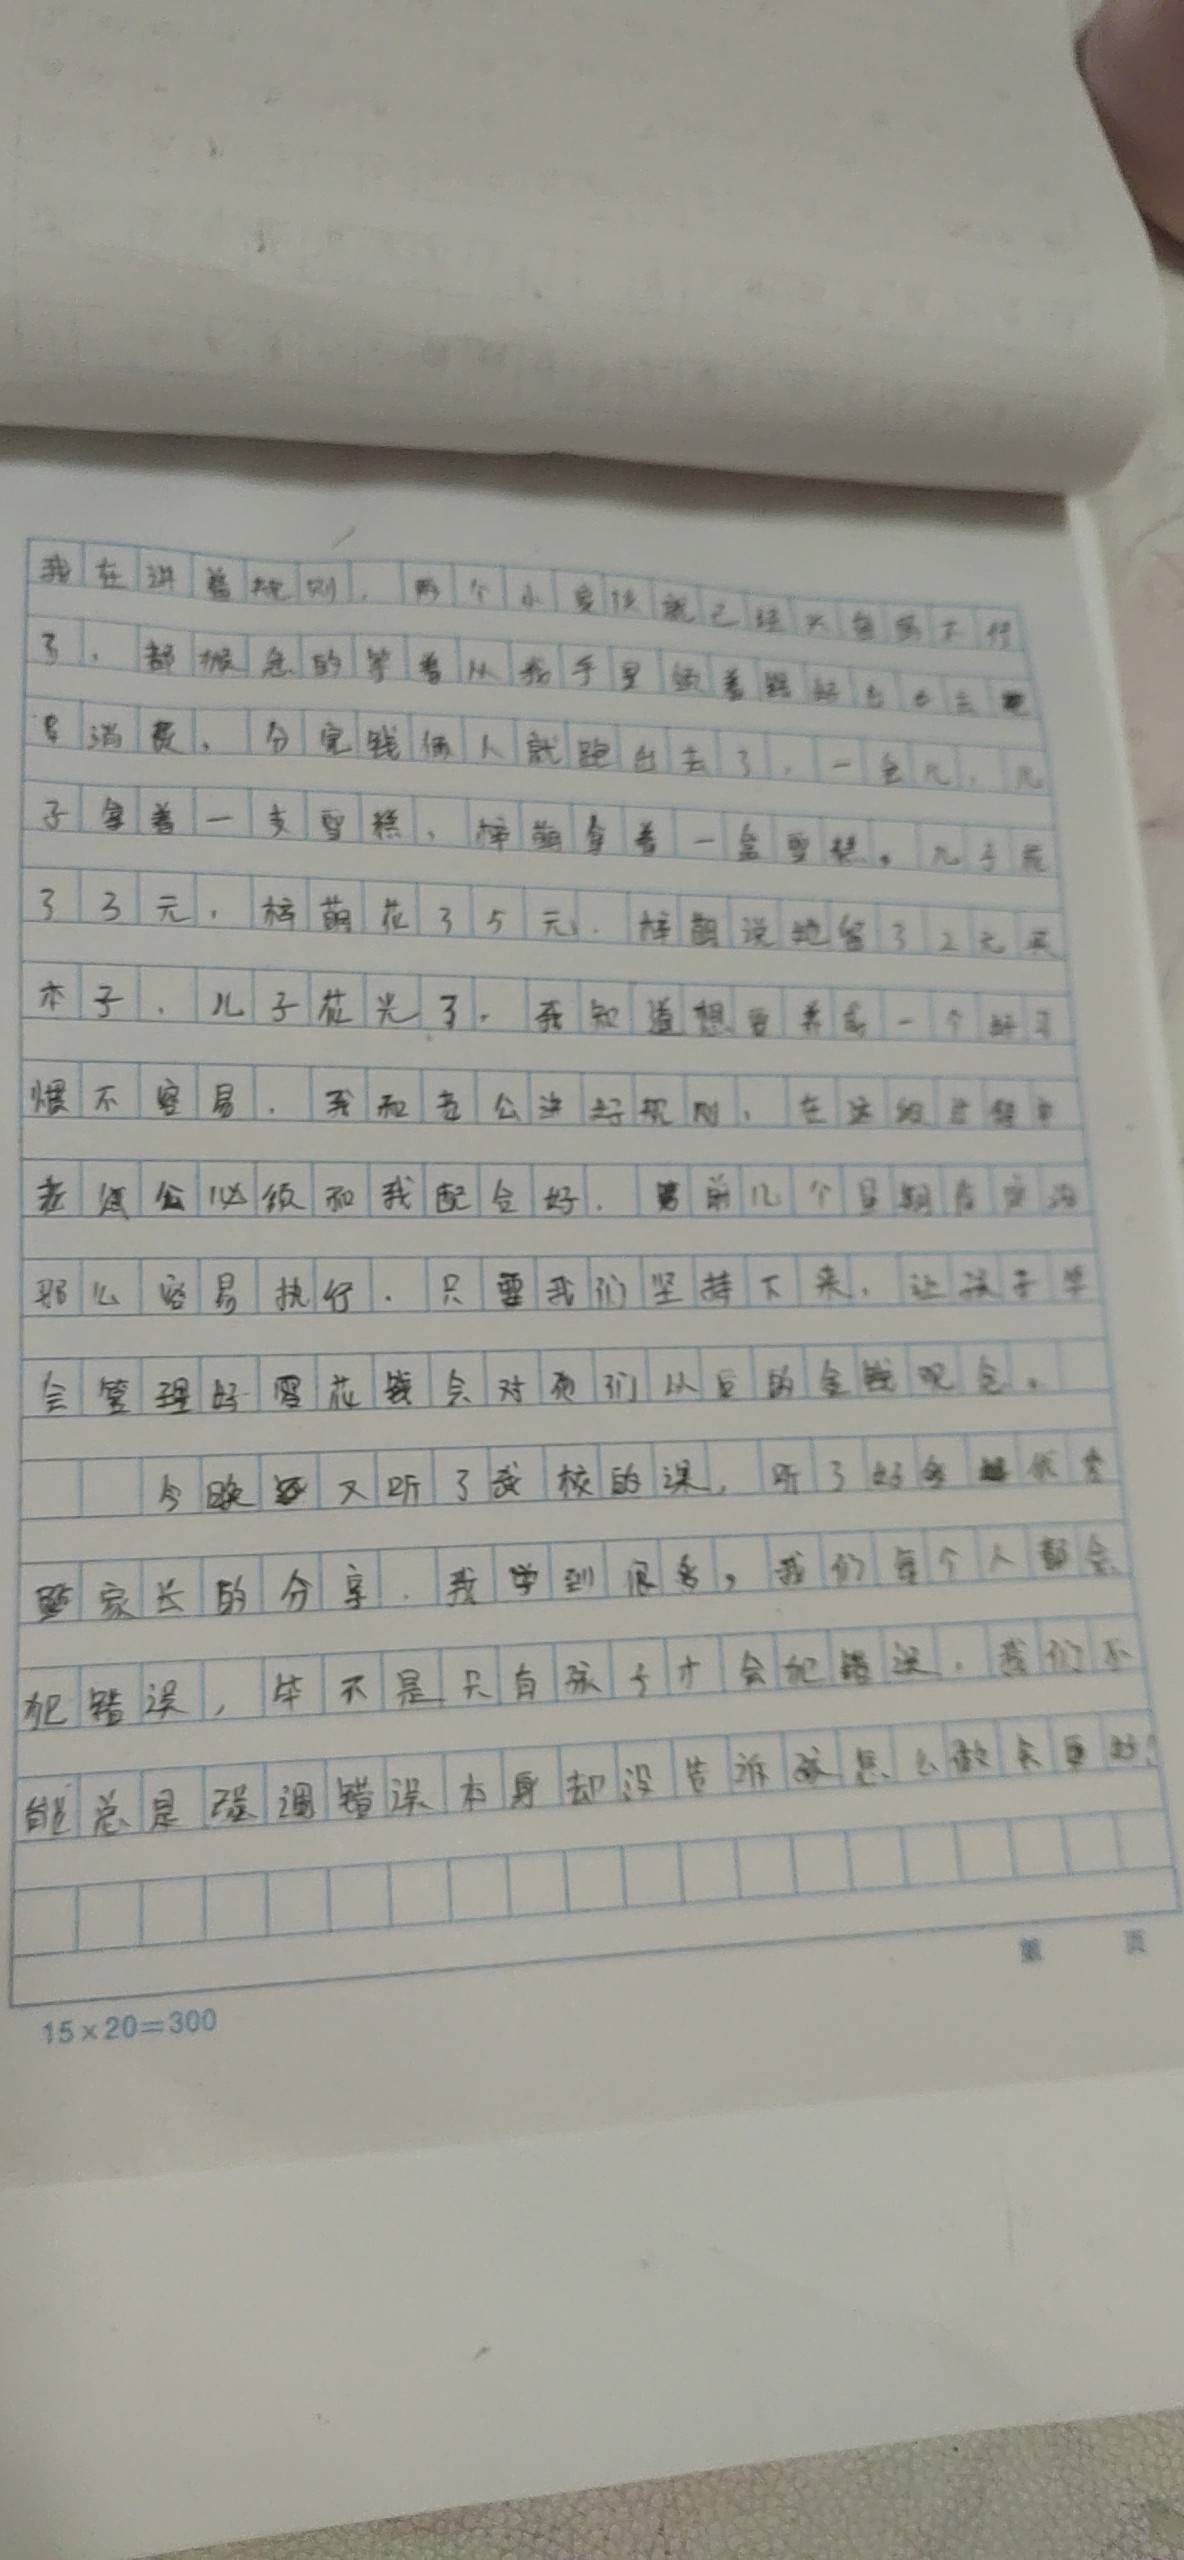 我在讲着规则，两个小家伙就已经兴奋的不行
了，都猴急的等着从我手里领着钱好出去
消费，分完钱俩人就跑出去了，一会儿，儿
子拿着一支雪糕，梓萌拿着一盒雪糕。儿子花
了3元，梓萌花了5元，梓萌说她留了2元买
本子，儿子花光了，我知道想要养成一个好习
惯不容易，我和老公讲好规则，在这个过程中
老公必须和我配合好，前几个星期应该没
那么容易执行，只要我们坚持下来，让孩子学
会管理好零花钱会对他们以后的金钱观念。
今晚又听了我校的课，听了好多优秀
家长的分享，我学到很多，我们每个人都会
犯错误，毕不是只有孩子才会犯错误，我们不
能总是强调错误本身却没告诉孩怎么做会更好！
第 页
15×20=300